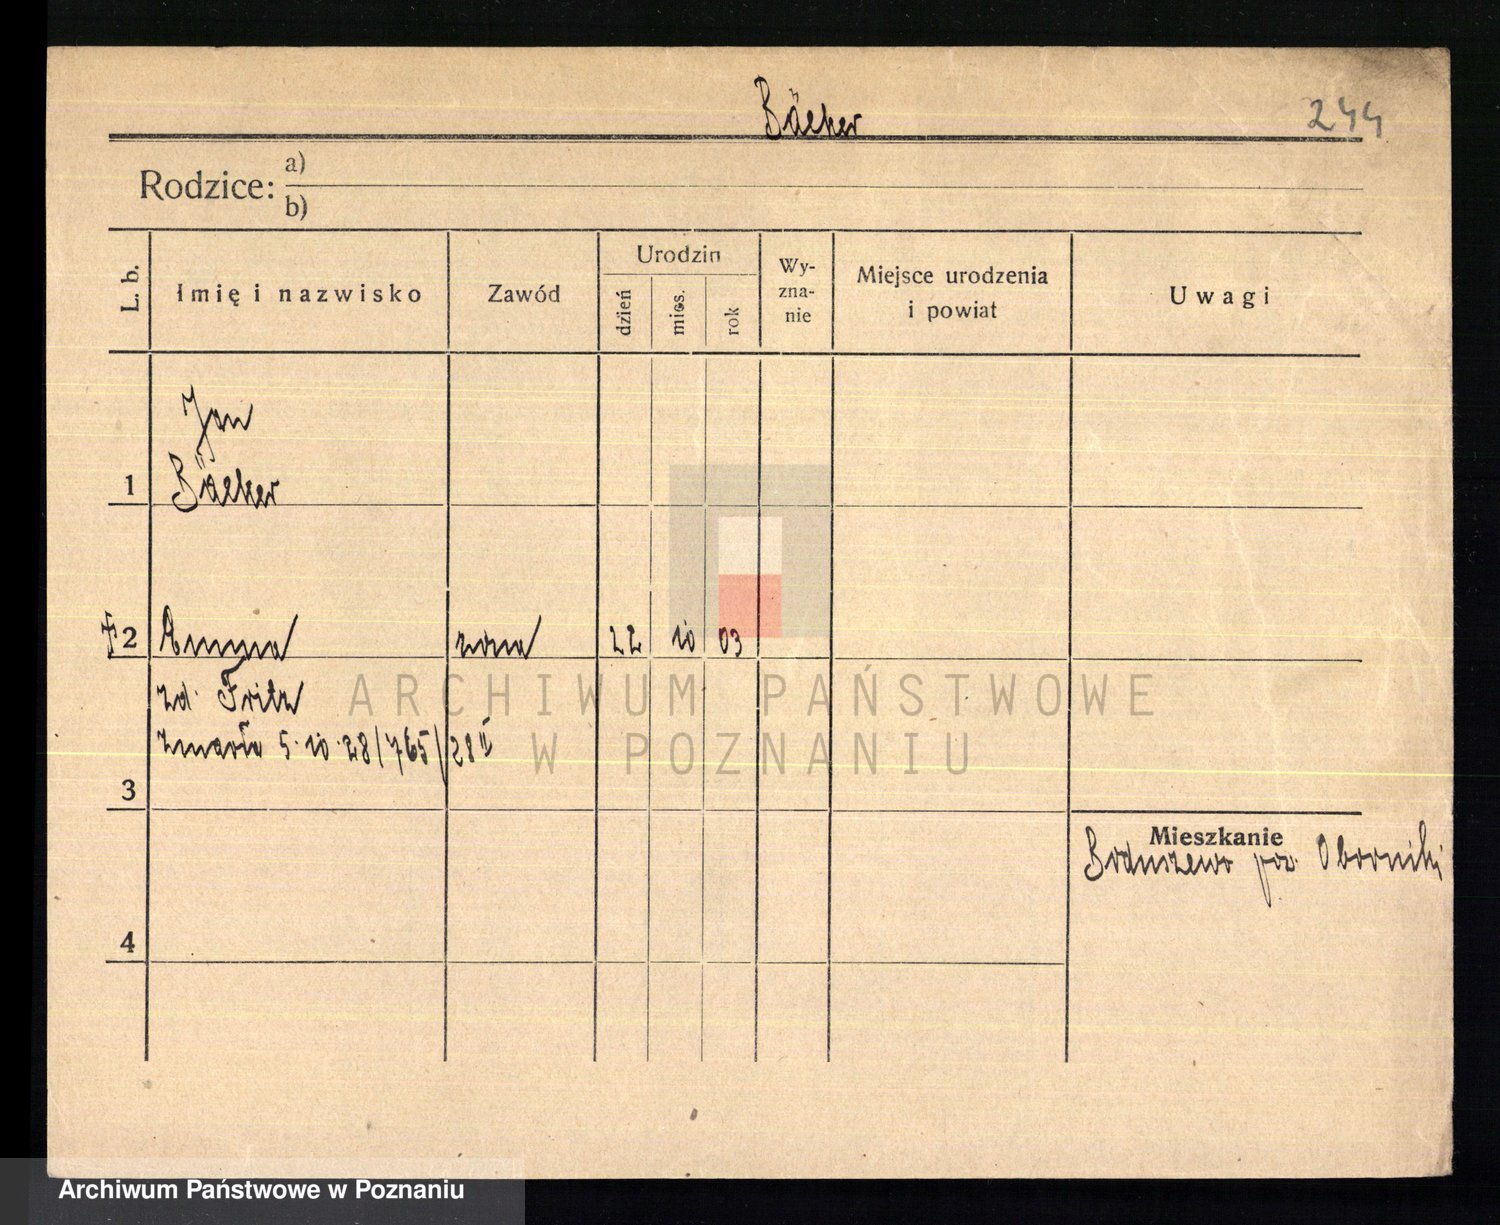 Bäcker
244
Rodzice: a)
b)
L. b.
Imię i nazwisko
Zawód
Urodzin
dzień
mies.
rok
Wy-
zna-
nie
Miejsce urodzenia
i powiat
Uwagi
Jan
1 Bäcker
2 Anna żona 22 10 03
zd. Fritz
zmarła 5.10.28/765/28 II
3
Mieszkanie
pow. Oborniki
4
ARCHIWUM PAŃSTWOWE
W POZNANIU
Archiwum Państwowe w Poznaniu